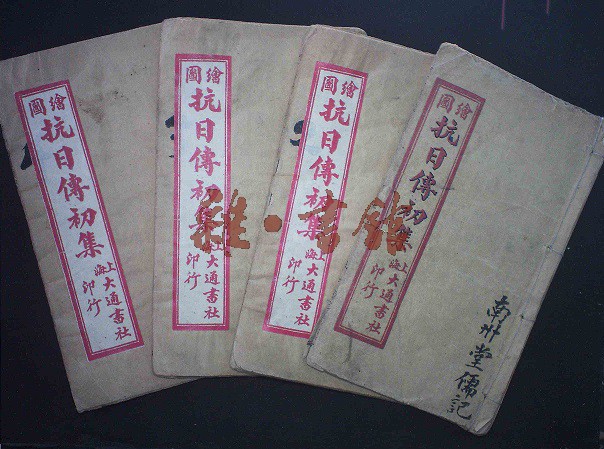 繪圖
抗日傳初集
上海
大通書社
印行
繪圖
抗日傳初集
上海
大通書社
印行
繪圖
抗日傳初集
上海
大通書社
印行
繪圖
抗日傳初集
上海
大通書社
印行
南州堂儒記